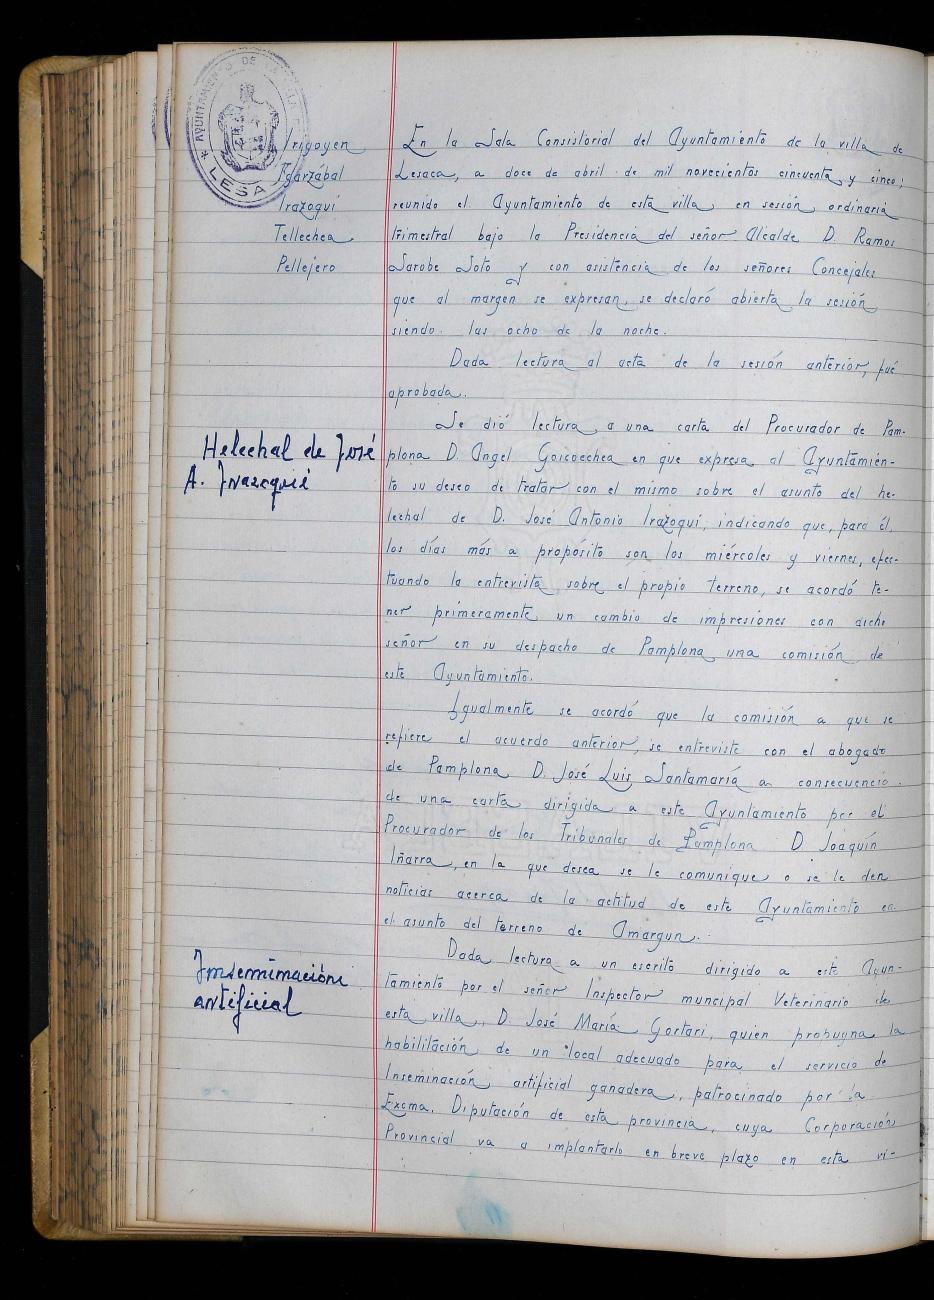 AYUNTAMIENTO DE LA VILLA DE
LESACA
Irigoyen
Igarzábal
Irazoqui
Tellechea
Pellejero
En la Sala Consistorial del Ayuntamiento de la villa de
Lesaca, a doce de abril de mil novecientos cincuenta y cinco;
reunido el Ayuntamiento de esta villa en sesión ordinaria
trimestral bajo la Presidencia del señor Alcalde D. Ramos
Sarobe Soto y con asistencia de los señores Concejales
que al margen se expresan, se declaró abierta la sesión
siendo las ocho de la noche.
Dada lectura al acta de la sesión anterior, fué
aprobada.
Helechal de José
A. Irazoqui
Se dió lectura a una carta del Procurador de Pam-
plona D. Angel Goicoechea en que expresa al Ayuntamien-
to su deseo de tratar con el mismo sobre el asunto del he-
lechal de D. José Antonio Irazoqui, indicando que, para él,
los días más a propósito son los miércoles y viernes, efec-
tuando la entrevista sobre el propio terreno, se acordó te-
ner primeramente un cambio de impresiones con dicho
señor en su despacho de Pamplona una comisión de
este Ayuntamiento.
Igualmente se acordó que la comisión a que se
refiere el acuerdo anterior, se entreviste con el abogado
de Pamplona D. José Luis Santamaría a consecuencia
de una carta dirigida a este Ayuntamiento por el
Procurador de los Tribunales de Pamplona D. Joaquín
Iñarra, en la que desea se le comunique o se le den
noticias acerca de la actitud de este Ayuntamiento en
el asunto del terreno de Amargun.
Inseminación
artificial
Dada lectura a un escrito dirigido a este Ayun-
tamiento por el señor Inspector muncipal Veterinario de
esta villa, D. José María Gortari, quien propugna la
habilitación de un local adecuado para el servicio de
Inseminación artificial ganadera, patrocinado por la
Excma. Diputación de esta provincia, cuya Corporación
Provincial va a implantarlo en breve plazo en esta vi-